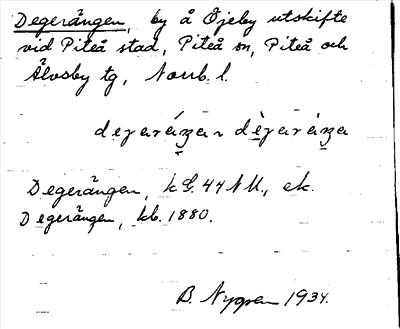 Degerängen, by å Öjeby utskifte
vid Piteå stad, Piteå sn, Piteå och
Älvsby tg, Norrb. l.
Degerängen, k G. 44 NU., ek.
Degerängen, kb. 1880.
B. Nygren 1934.